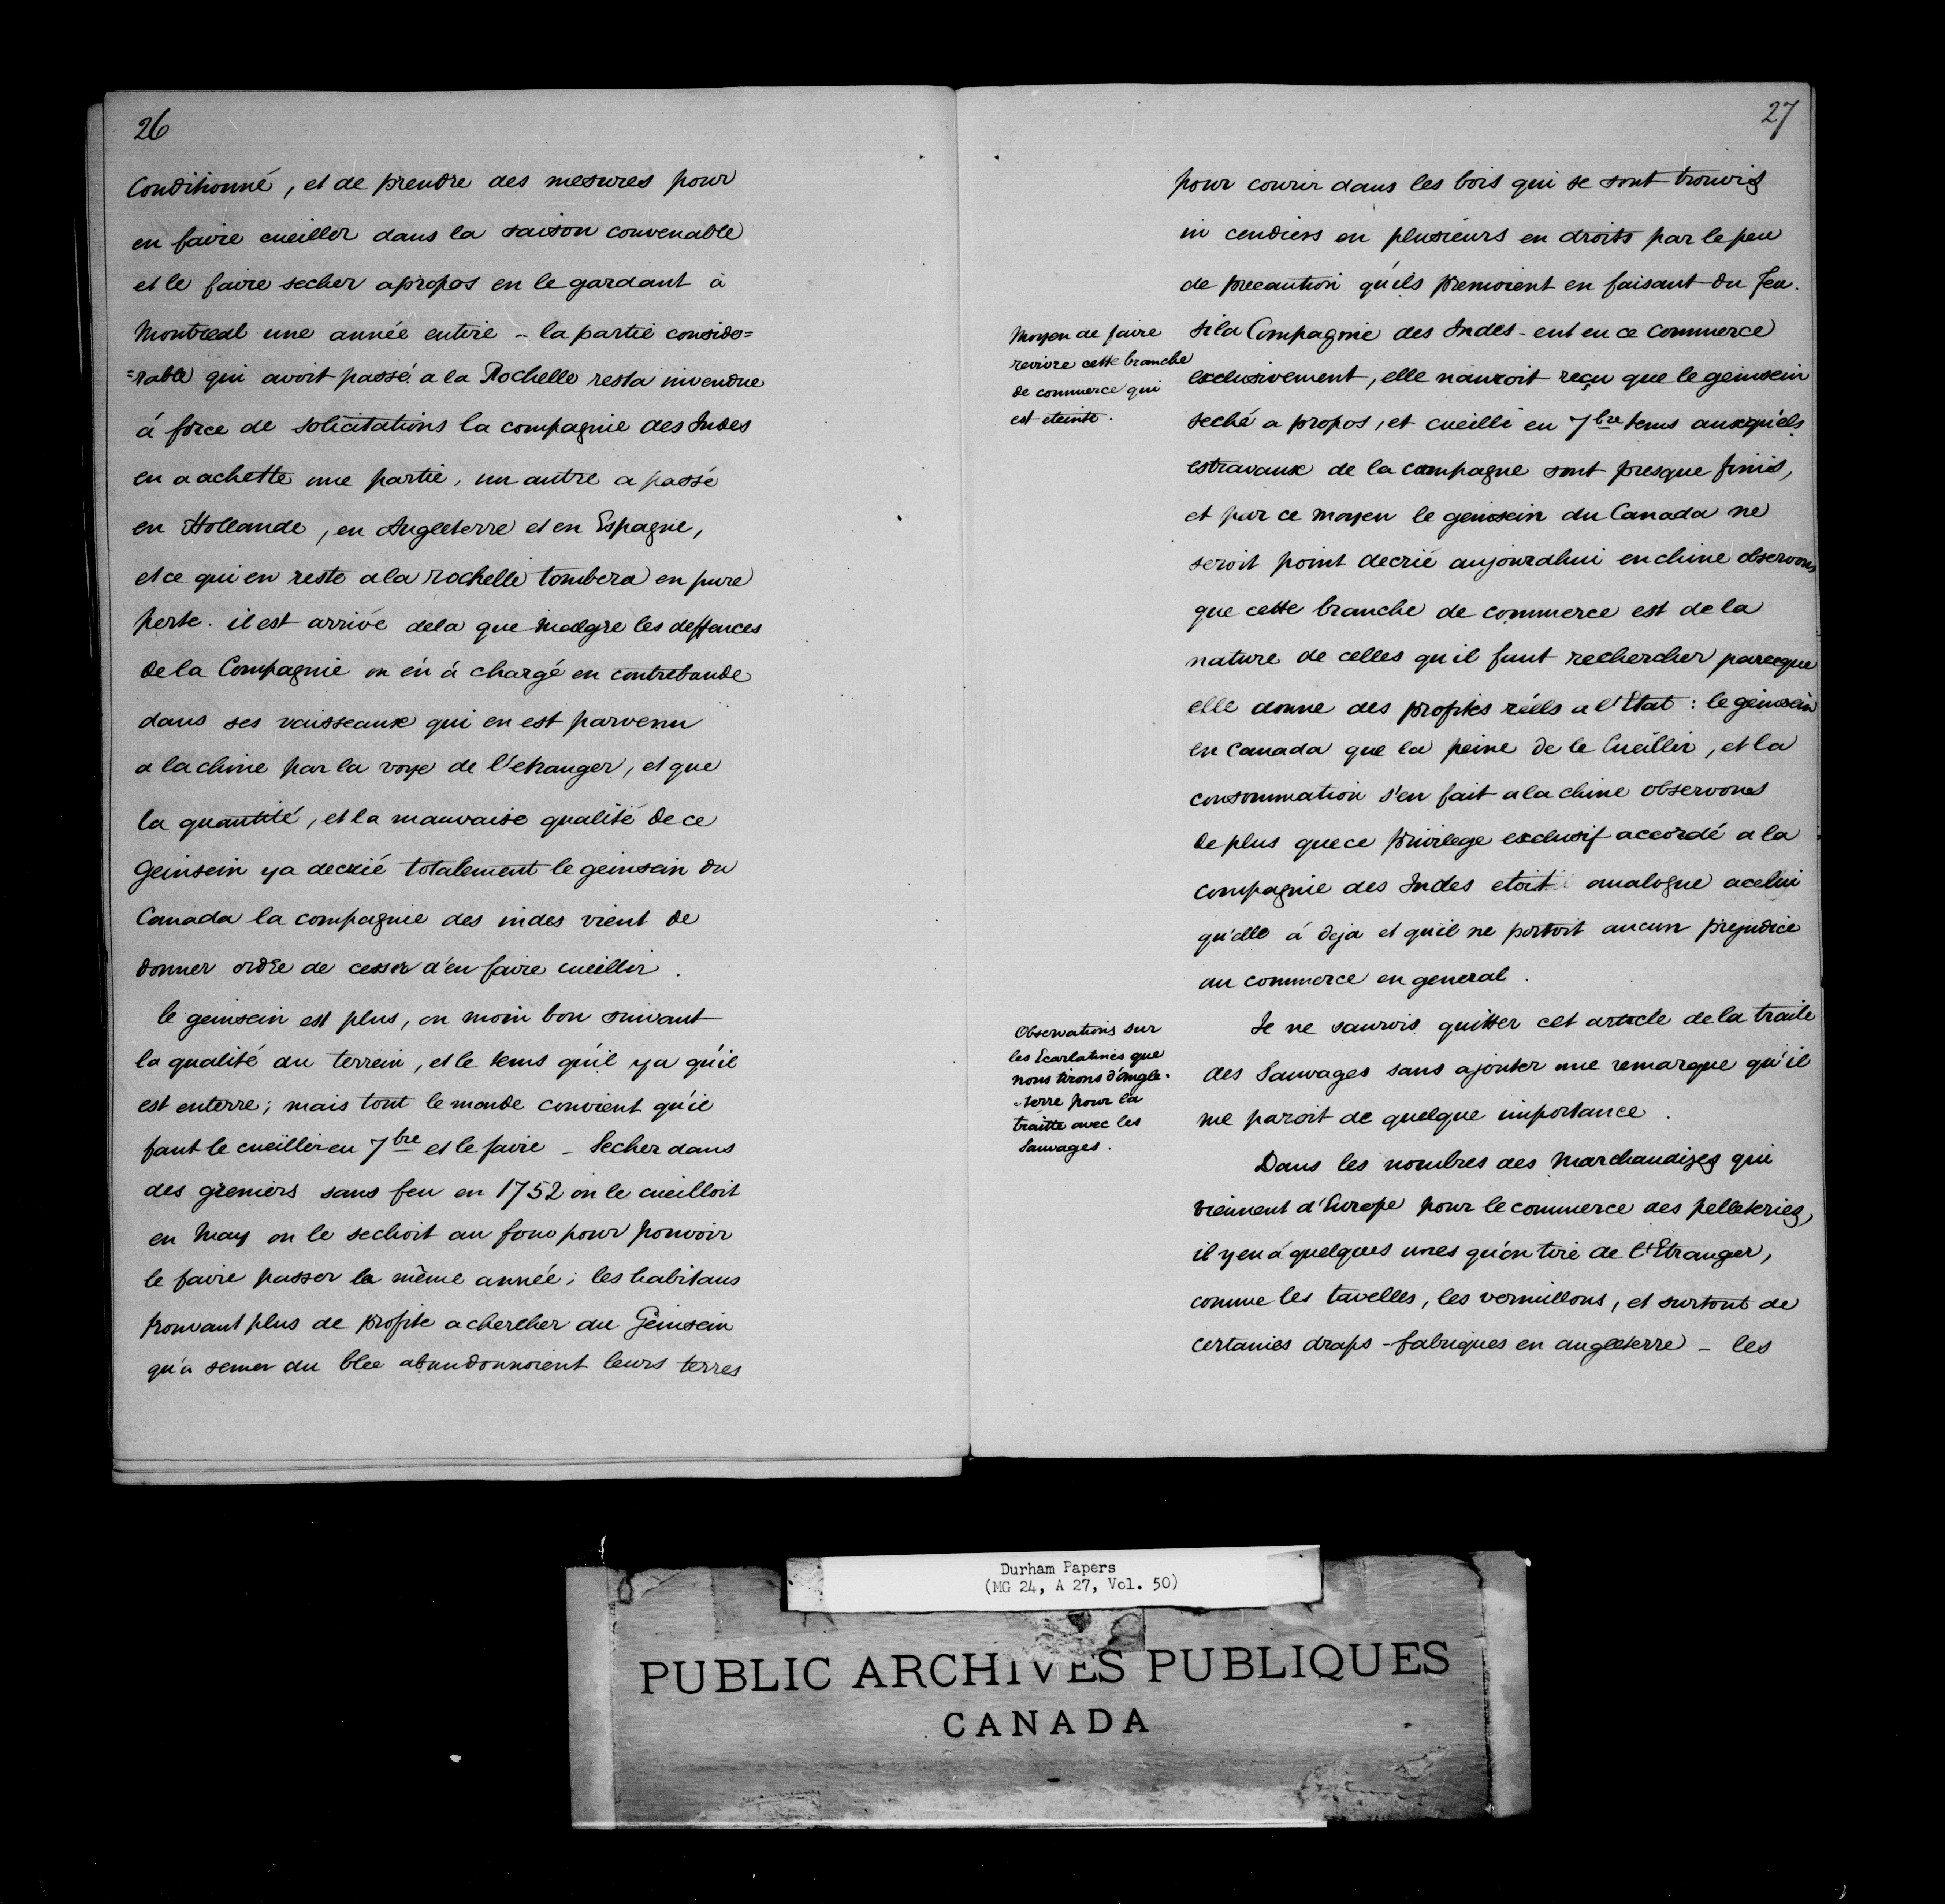 26
Conditionné, et de prendre des mesures pour
en faire cueiller dans la saison convenable
et le faire secher apropos en le gardant à
Montreal une année entire - la partie conside=
=rable qui avoit passé a la Rochelle resta invendue
á force de solicitations la compagnie des Indes
en a achette une partie, un autre a passé
en Hollande, en Angleterre et en Espagne,
et ce qui en reste a la rochelle tombera en pure
perte. il est arrivé dela que malgre les deffences
de la Compagnie on én á chargé en contrebande
dans ses vaisseaux qui en est parvenu
a la chine par la voye de l'etranger, et que
la quantité, et la mauvaise qualité de ce
geinsein ya decrié totalement le geinsein du
Canada la compagnie des indes vient de
donner ordre de cesser d'en faire cueillir.
le geinsein est plus, ou moin bon suivant
la qualité du terrein, et le tems qu'il ya qu'il
est enterre; mais tout le monde convient qu'il
faut le cueillir en 7bre et le faire - Secher dans
des greniers sans feu en 1752 on le cueilloit
en May on le sechoit au four pour pouvoir
le faire passer la même année; les habitans
trouvant plus de profite a chercher du Geinsein
qu'a semer du blee abandonnoient leurs terres
27
pour courir dans les bois qui se sont trouvis
in cendiers en plusieurs en droits par le peu
de precaution qu'ils prenoient en faisant du feu.
Moyen de faire
revivre cette branche
de commerce qui
est eteinte.
si la Compagnie des Indes - eut eu ce commerce
exclusivement, elle nauroit reçu que le geinsein
seché a propos, et cueilli en 7bre tems auxqu'els
estravaux de la campagne sont presque finis,
et par ce moyen le geinsein du Canada ne
seroit point decrié aujourdhui en chine observons
que cette branche de commerce est de la
nature de celles qu'il faut rechercher parceque
elle donne des profites réels a l'Etat: le geinsein
en Canada que la peine de le Cueillir, et la
consommation s'en fait a la chine observons
de plus que ce privilege exclusif accordé a la
compagnie des Indes etoit analogue acelui
qu'elle á deja et qu'il ne portoit aucun prejudice
au commerce en general.
Observations sur
les Ecarlatines que
nous tirons d'angle-
-terre pour la
traitte avec les
Sauvages.
Je ne saurois quitter cet article de la traite
des Sauvages sans ajouter une remarque qu'il
me paroit de quelque importance.
Dans les nombres des Marchandizes qui
viennent d'Europe pour le commerce des pelleteries,
il y en á quelques unes qu'on tire de l'Etranger,
comme les tavelles, les vermillons, et surtout de
certaines draps - fabriques en angleterre - les
Durham Papers
(MG 24, A 27, Vol. 50)
PUBLIC ARCHIVES PUBLIQUES
CANADA